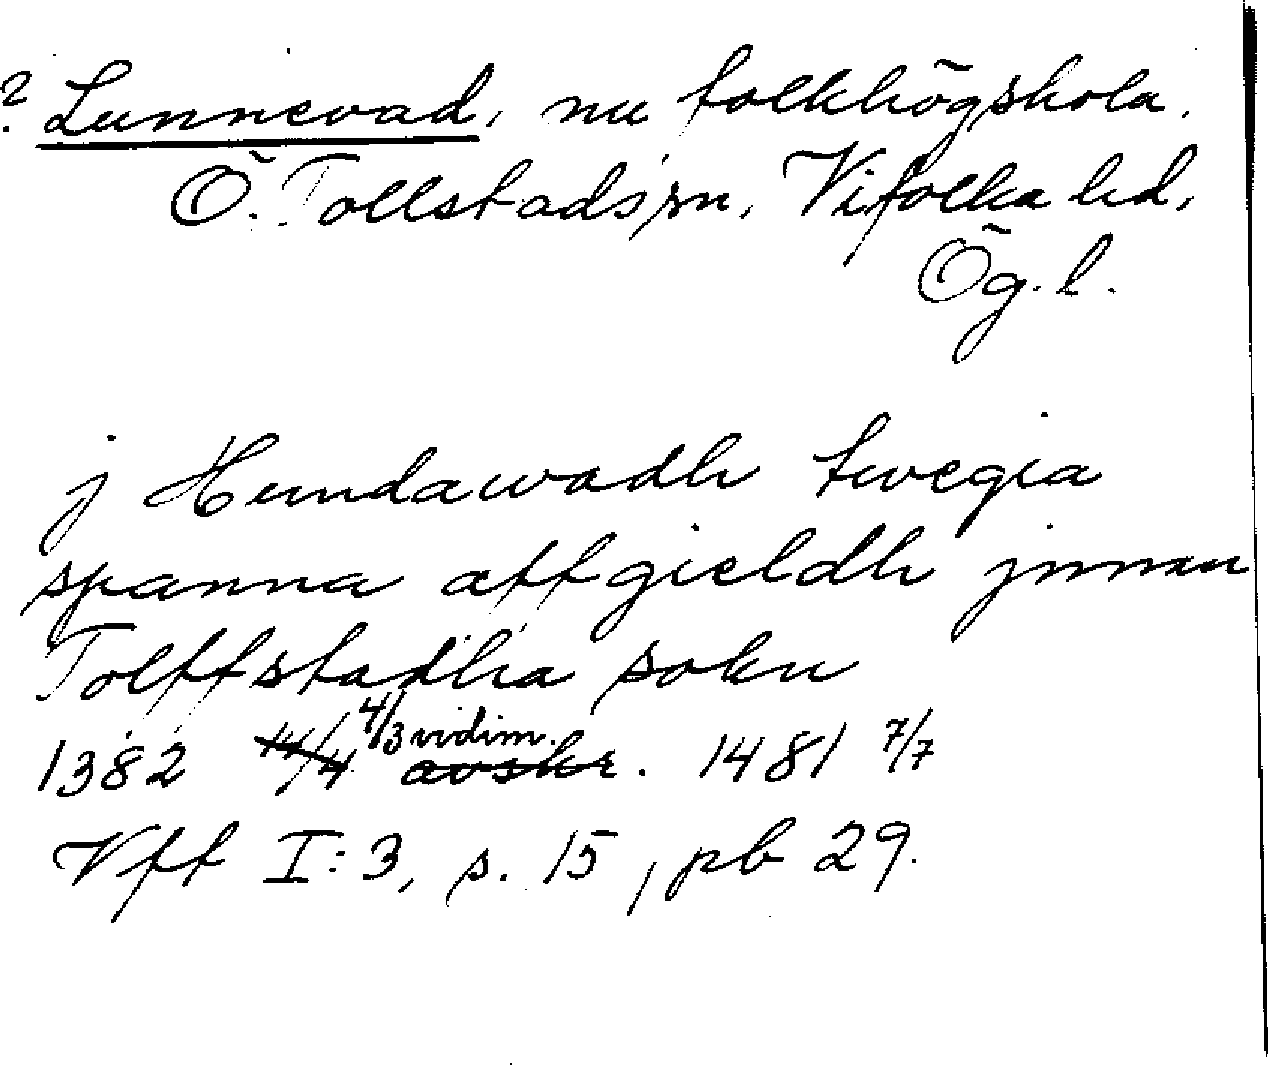 ? Lunnevad, nu folkhögskola.
Ö. Tollstads sn, Vifolka hd,
Ög. l.
j Hundawadh twegia
spanna affgieldh jnnan
Tolffstadha sokn
1382 14/4 4/3 vidim. avskr. 1481 7/7
Vff I:3, s. 15, pb 29.